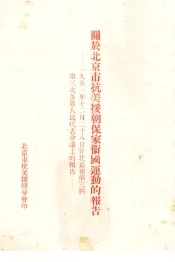 關於北京市抗美援朝保家衛國運動的報告
——一九五一年十二月二十八日在北京市第三屆
第三次各界人民代表會議上的報告——
北京市抗美援朝分會印